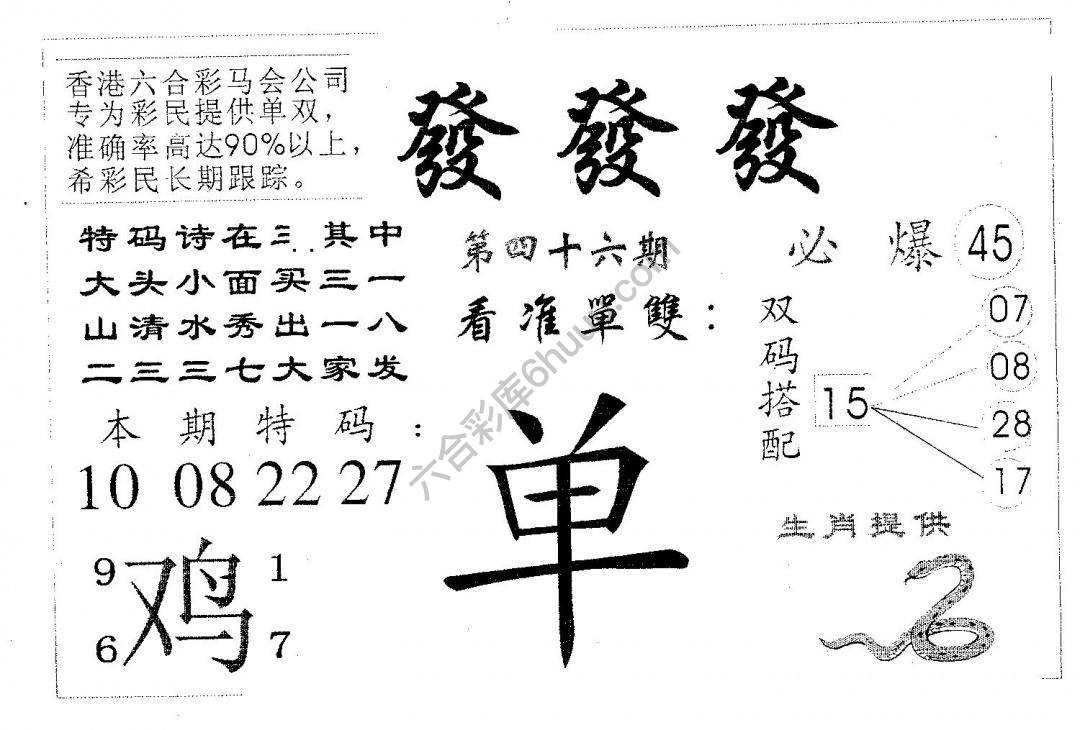 香港六合彩马会公司
专为彩民提供单双，
准确率高达90%以上，
希彩民长期跟踪。
發發發
特码诗在三..其中
大头小面买三一
山清水秀出一八
二三三七大家发
第四十六期
看准單雙：
必爆45
双码搭配
15
07
08
28
17
本期特码：
10 08 22 27
单
9 1
鸡
6 7
生肖提供
六合彩库6huu.com